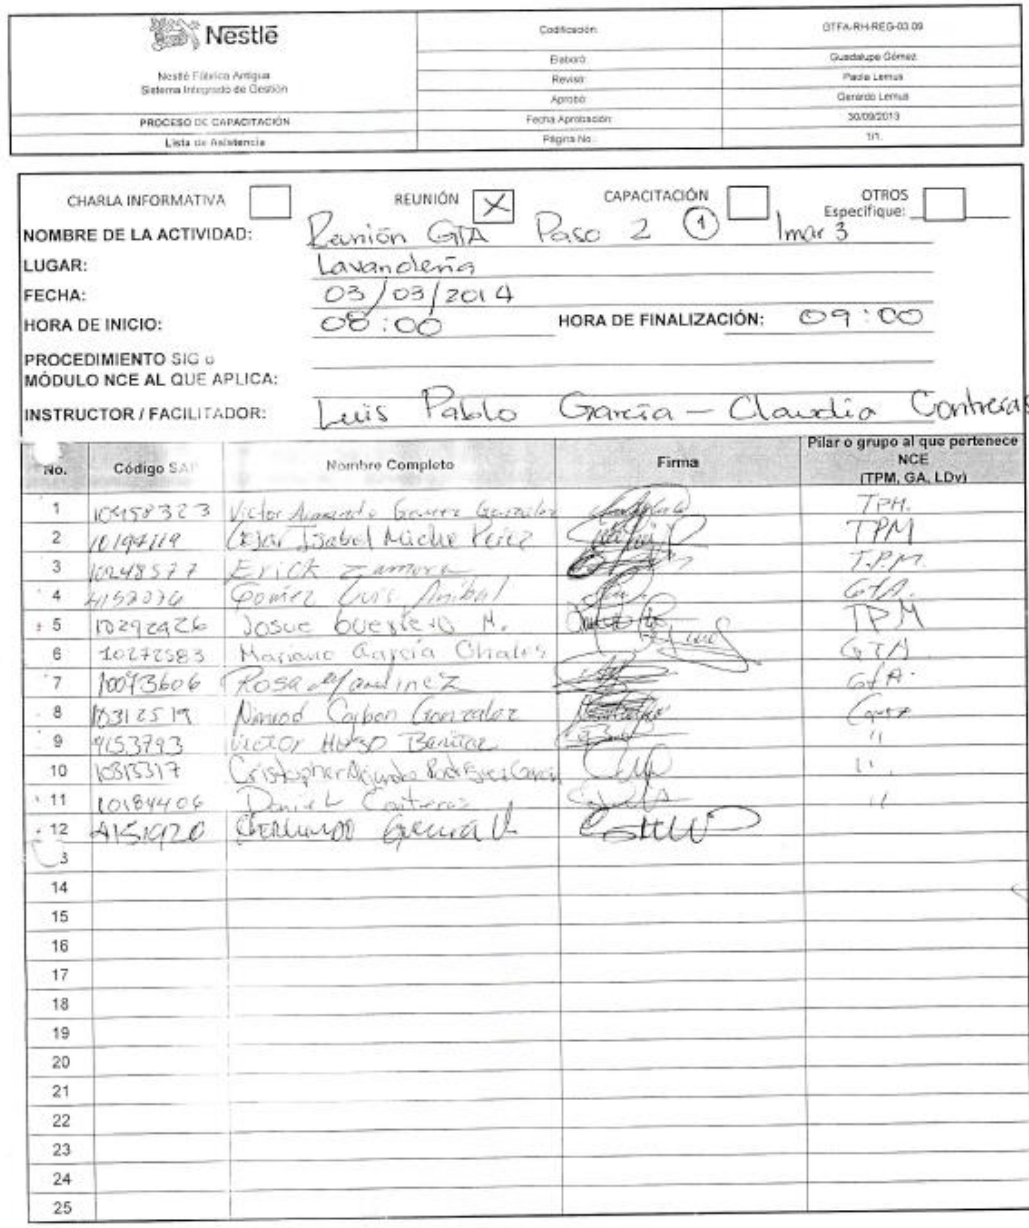 Nestlē
Nestlé Fábrica Antigua
Sistema Integrado de Gestión
PROCESO DE CAPACITACIÓN
Lista de Asistencia
Codificación: GTFA-RH-REG-03.09
Elaboró: Guadalupe Gómez
Revisó: Paola Lemus
Aprobó: Gerardo Lemus
Fecha Aprobación: 30/09/2013
Página No.: 1/1.
CHARLA INFORMATIVA REUNIÓN X CAPACITACIÓN OTROS
Especifique:
NOMBRE DE LA ACTIVIDAD: Reunión GTA Paso 2 1 Imar 3
LUGAR: Lavandería
FECHA: 03/03/2014
HORA DE INICIO: 08:00 HORA DE FINALIZACIÓN: 09:00
PROCEDIMIENTO SIG o
MÓDULO NCE AL QUE APLICA:
INSTRUCTOR / FACILITADOR: Luis Pablo García - Claudia Contreras
No. Código SAP Nombre Completo Firma Pilar o grupo al que pertenece
NCE
(TPM, GA, LDv)
1 Victor TPM.
2 10194119 Isabel Pérez TPM
3 10248577 Erick Zamora T.P.M.
4 Gómez Luis Anibal GTA.
5 10292926 Josue H. TPM
6 10272583 Mariano García GTA
7 10073606 Rosa Martinez GTA.
8 10312519 Gonzalez
9 4153793 Victor Hugo Benitez "
10 10315317 Cristopher Rodriguez "
11 10184406 Daniel Contreras "
12 4151920 Guerra V.
3
14
15
16
17
18
19
20
21
22
23
24
25